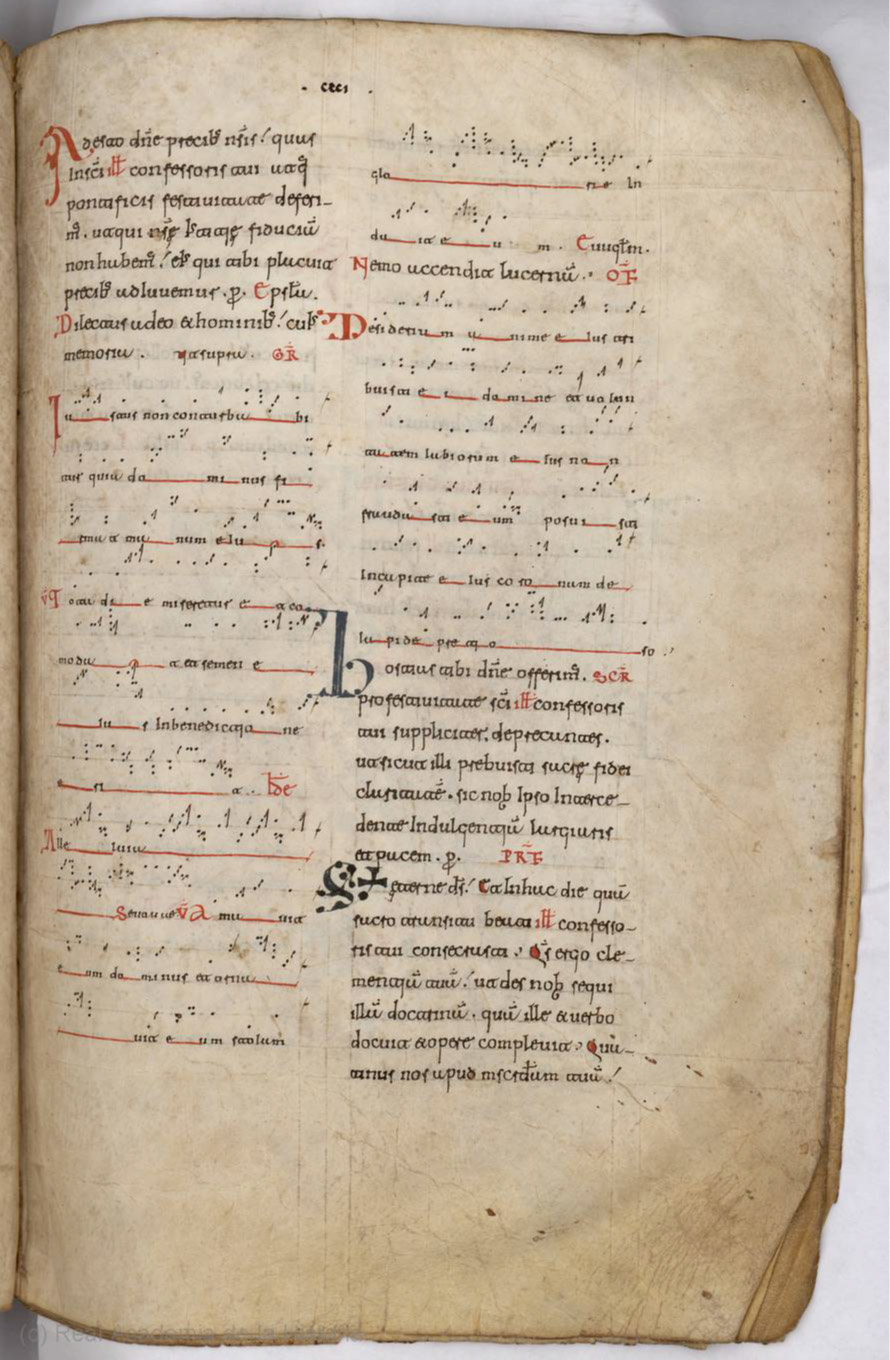 . ccci .
Adesto dñe precib; nr̃is! quas
In sc̃i ill̃ confessoris tui atq;
pontificis festiuitate deferi-
m;. ut qui nr̃ę iustitię fiduciã
non habem;! ei; qui tibi placuit
precib; adiuuemur. p̲. Epsła.
Dilectus a deo & hominib;! cui;
memoria. Vt supra. GR̃
Iu stus non conturba bi
tur quia do mi nus fi
rmat ma num eius
Ṽ Tota di e miseretur et co
moda t et semen e
iu s In benedictio ne
e ri t . L̃de
Alle luia
Serua ue Ṽ A ma uit
e um do minus et orna
uit e um stolam
glo rie In
du it e u m . Euuglm.
Nemo accendit lucernã. OF̃
Desideriu m a nime e ius tri
buisti e i do mi ne et uolun
tatem labiorum e ius no n
frauda sti e um posui sti
In capite e ius co ro num de
la pi de pre tio so
Hostias tibi dñe offerim;. SCR̃
pro festiuitate sc̃i ill̃ confessoris
tui supplicit; deprecantes.
ut sicut illi prebuisti sacrę fidei
claritatẽ. sic nob Ipso Interce-
dente Indulgentiã largiaris
et pacem. p̲. PRF̃
Eterne d̃s! Et In hac die quã
sacro transitu beati ill̃ confesso-
ris tui consecrasti. Q̃s ergo cle-
mentiã tuã! ut des nob sequi
illã doctrinã. quã ille & uerbo
docuit & opere compleuit. Quã-
tinus nos apud mscrdiam tuã!
(c) Real Academia de la Historia